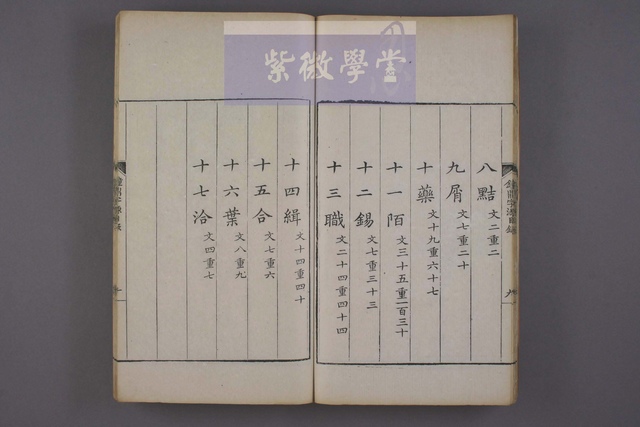 紫微學堂
八黠 文二重二
九屑 文七重二十
十藥 文十九重六十七
十一陌 文三十五重一百三十
十二錫 文七重三十三
十三職 文二十四重四十四
十四緝 文十四重四十
十五合 文七重六
十六葉 文八重九
十七洽 文四重七